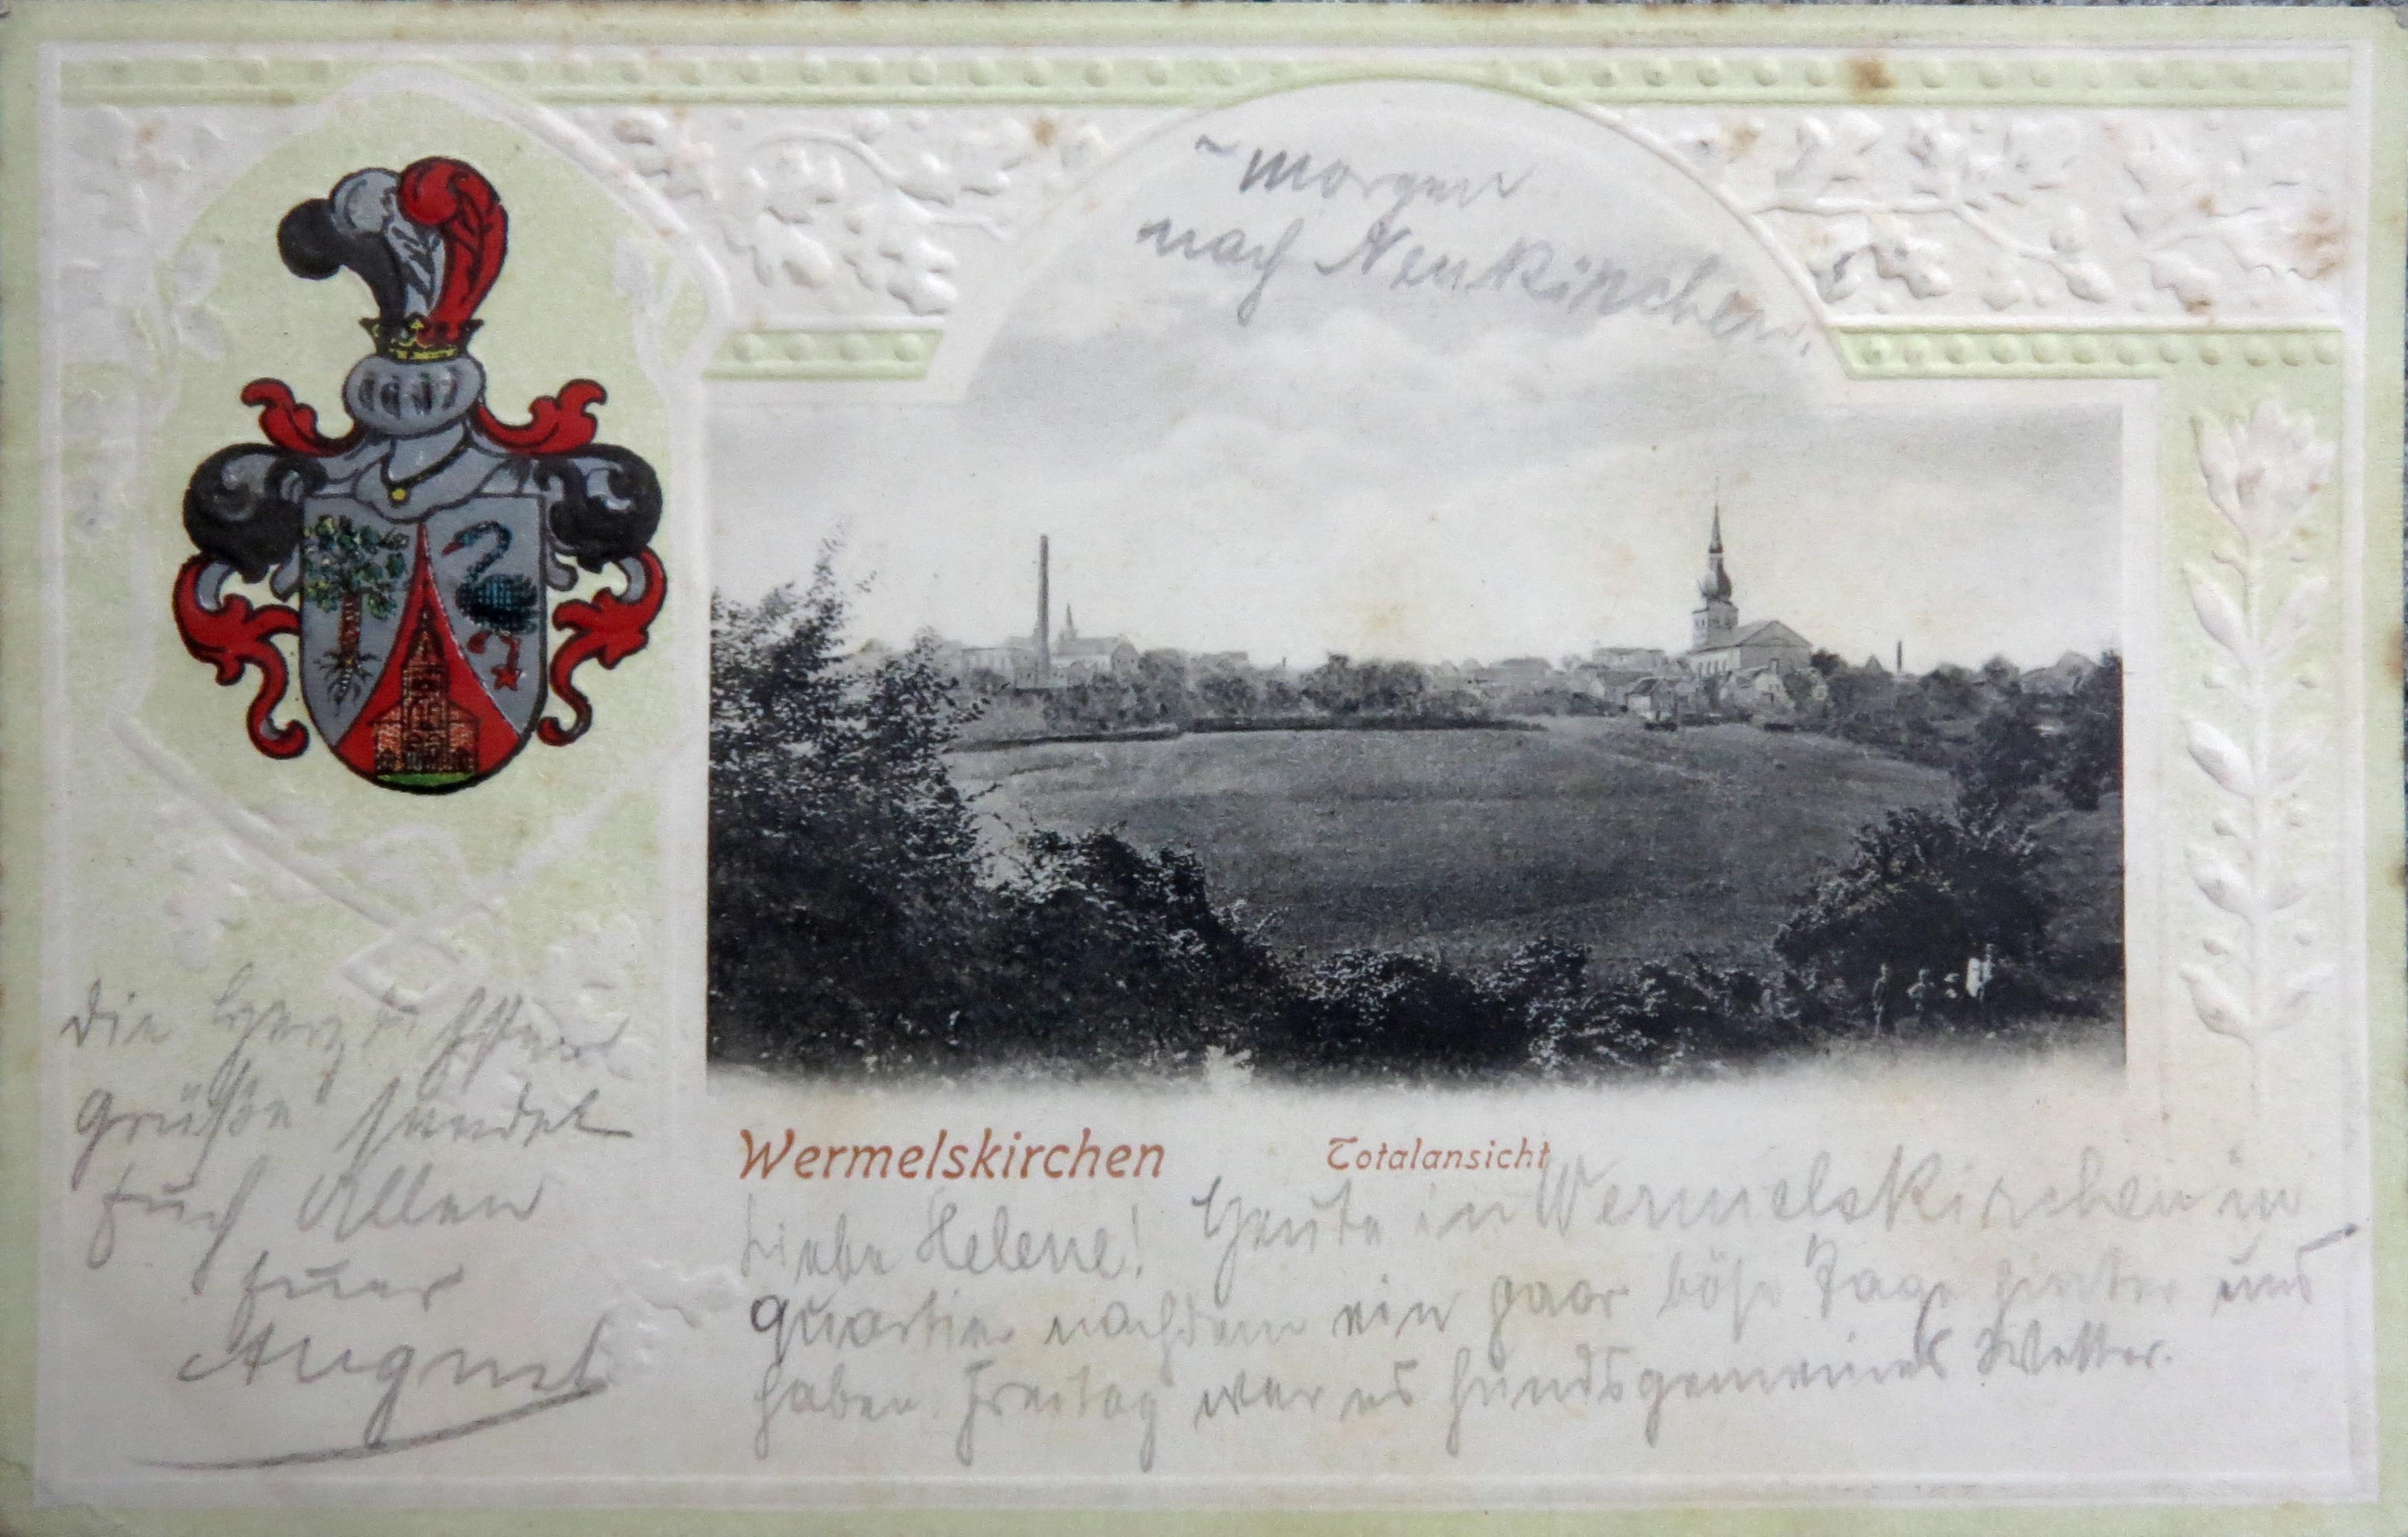 Wermelskirchen
Totalansicht
Liebe Helene! Heute in Wermelskirchen in
Quartier nachdem ein paar böse Tage hinter uns
haben. Freitag war es hundsgemeines Wetter.
morgen
nach Neukirchen.
die herzlichsten
Grüße sendet
Euch Allen
Euer
August